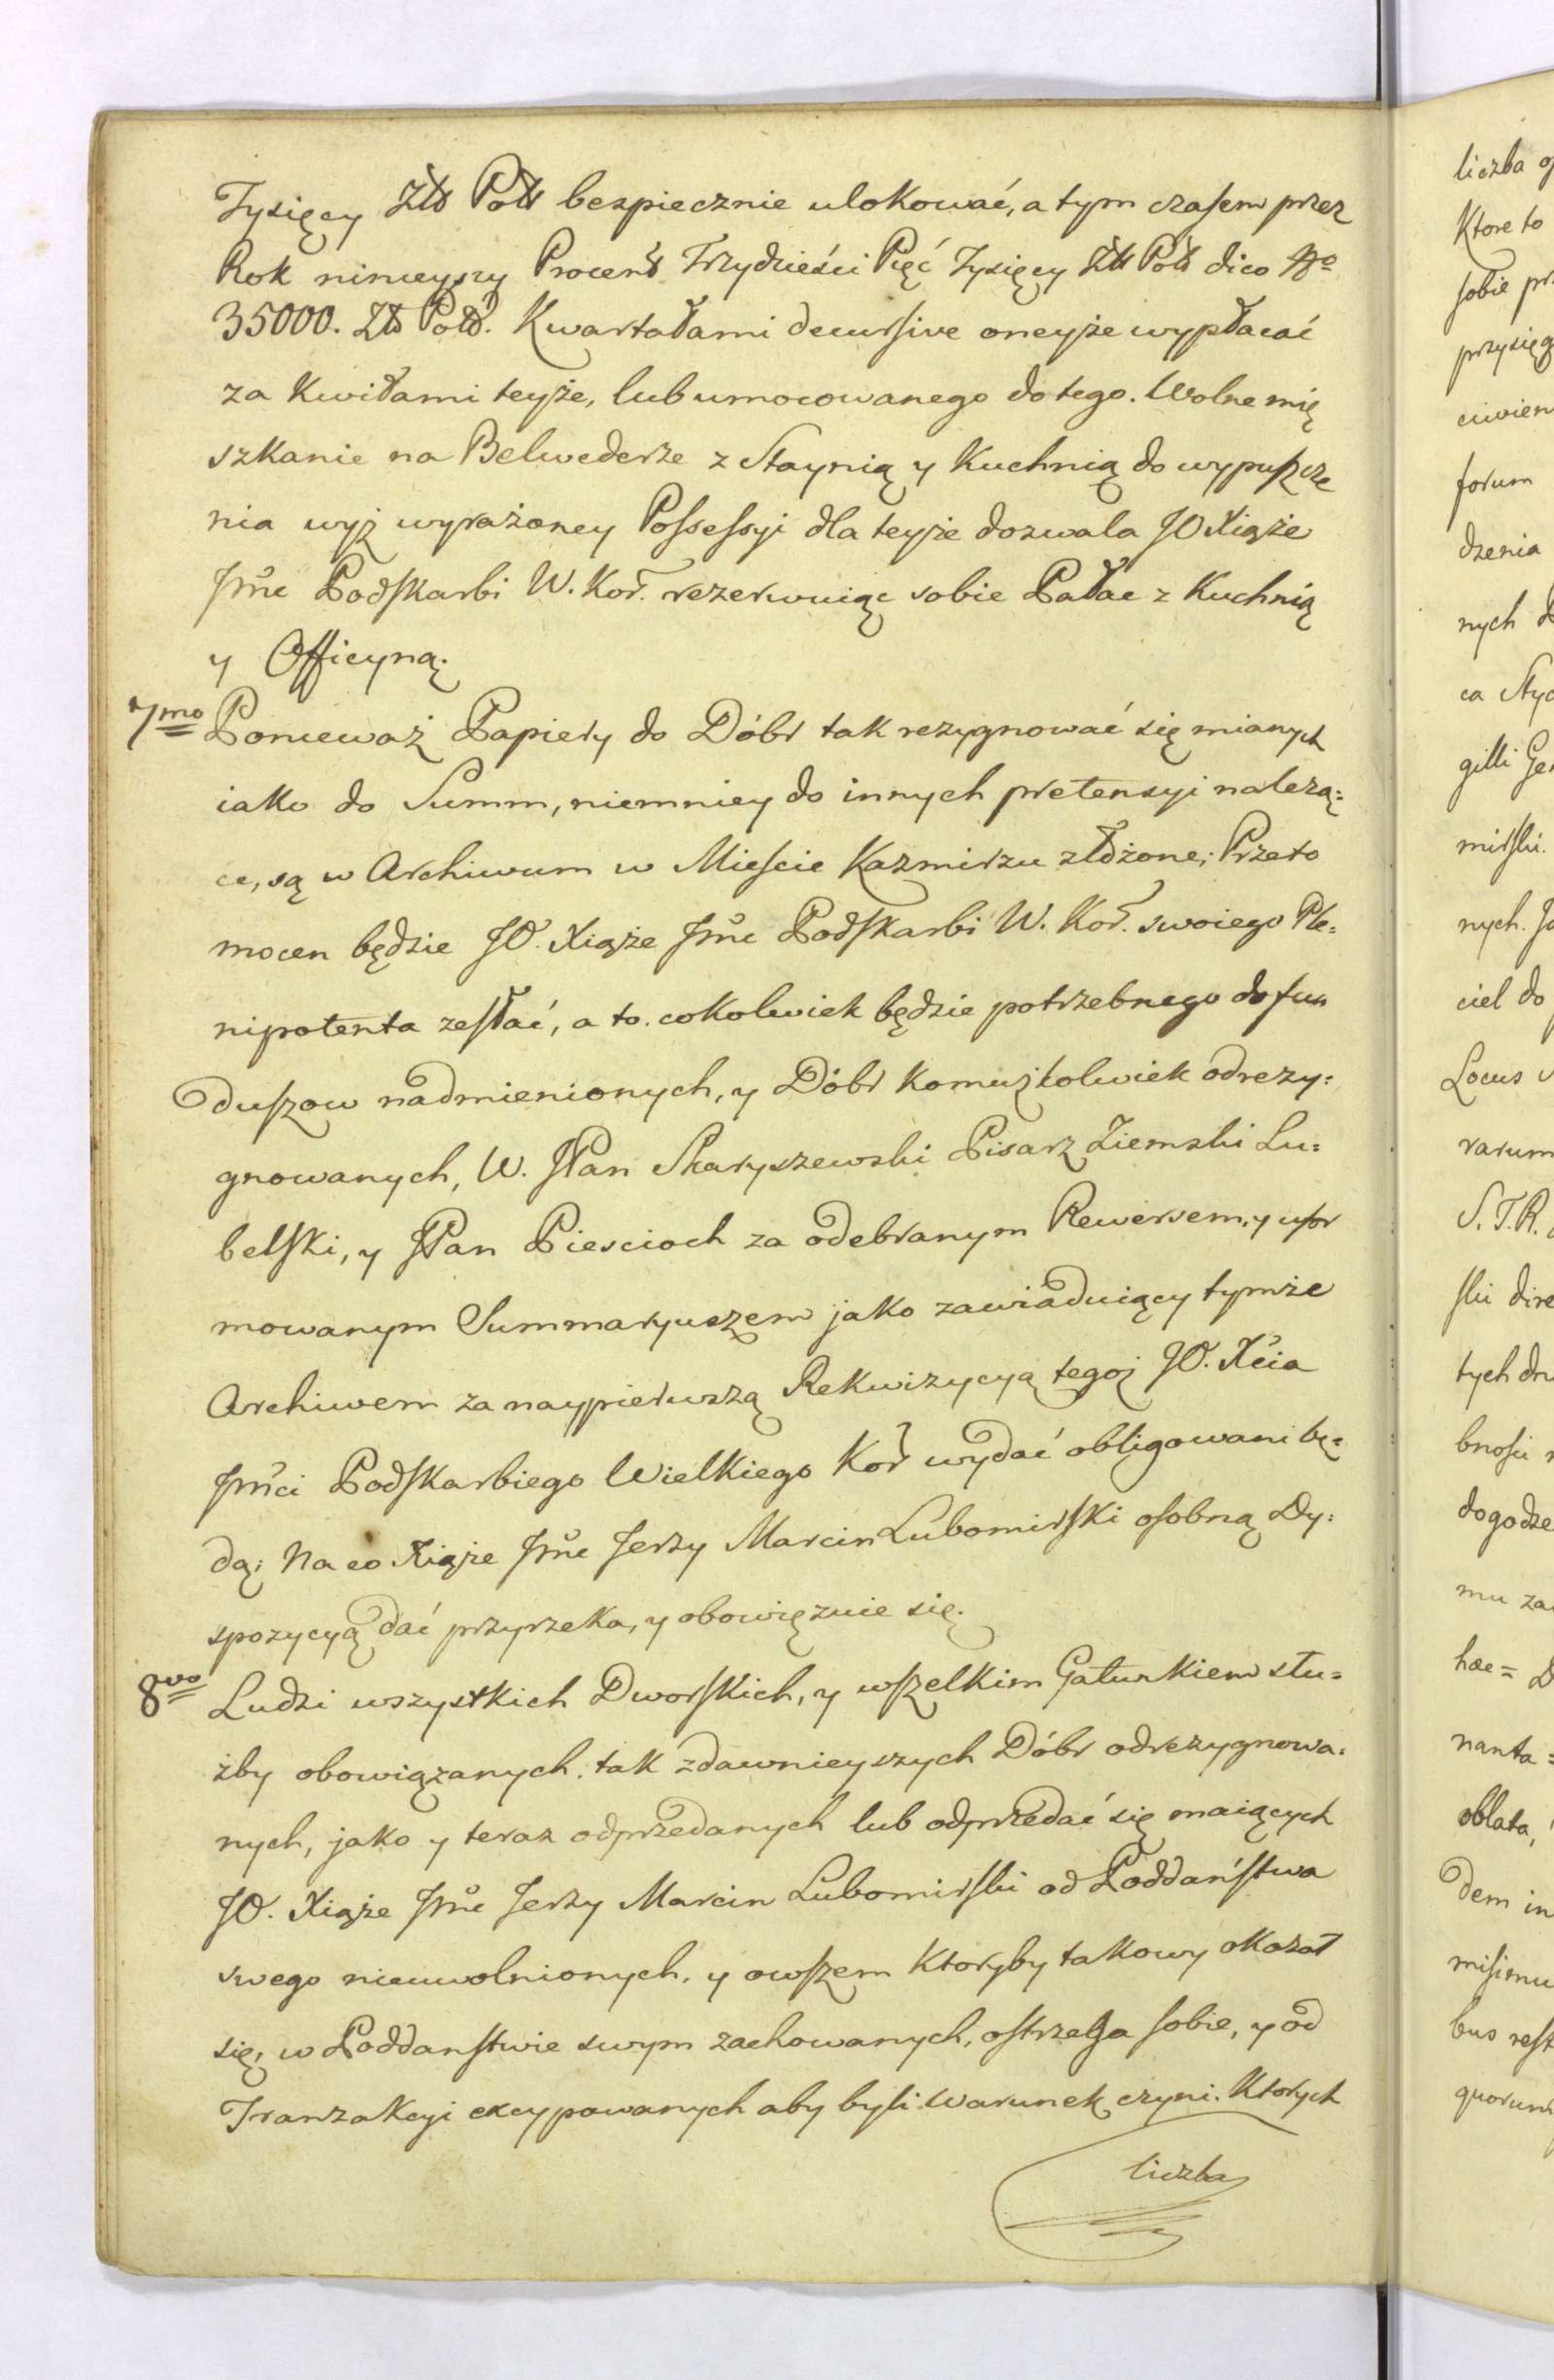 Tysięcy Złł Poll bezpiecznie ulokować, a tym czasem przez
Rok ninieyszy Procent Trzydzieści Pięć Tysięcy Złł Poll dico Nro
35000. Złł Poll. Kwartałami decursive oneyże wypłacać
za Kwitami teyże, lub umocowanego do tego. Wolne mię
szkanie na Belwederze z Staynią y Kuchnią do wypuszcze
nia wyż wyrażoney Possessyi dla teyże dozwala JO Xiąże
Jmć Podskarbi W. Kor. rezerwuiąc sobie Pałac z Kuchnią
y Officyną.
7mo Ponieważ Papiery do Dóbr tak rezygnować się mianych
iako do Summ, niemniey do innych pretensyi należą=
ce, są w Archiwum w Mieście Kazmirzu złożone; Przeto
mocen będzie JO. Xiąże Jmć Podskarbi W. Kor. swoiego Ple=
nipotenta zesłać, a to. cokolwiek będzie potrzebnego do fun
duszow nadmienionych, y Dóbr komużkolwiek odrezy=
gnowanych, W. JPan Skaryszewski Pisarz Ziemski Lu=
belski, y JPan Piescioch za odebranym Rewersem, y ufor
mowanym Summaryuszem jako zawiaduiący tymże
Archiwem za naypierwszą Rekwizycyą tegoż JO. Xcia
Jmći Podskarbiego Wielkiego Kor wydać obligowani bę=
dą; Na co Xiąże Jmć Jerzy Marcin Lubomirski osobną Dy=
spozycyą dać przyrzeka, y obowięzuie się.
8vo Ludzi wszystkich Dworskich, y wszelkim Gatunkiem słu=
żby obowiązanych. tak z dawnieyszych Dóbr odrezygnowa=
nych, jako y teraz odprzedanych lub odprzedać się maiących
JO. Xiąże Jmć Jerzy Marcin Lubomirski od Poddaństwa
swego nieuwolnionych, y owszem Ktoryby takowy okazał
się, w Poddanstwie swym zachowanych, ostrzega sobie, y od
Tranzakcyi excypowanych aby byli Warunek czyni. Ktorych
liczba
liczba
Ktore to
sobie
przysięg
forum
dzenia
nych
ca
gilli
mirski.
nych.
ciel do
Locus
rarum
S. T. R.
ski
tych
bnosci
dogodze
mu
hæc=
nanta=
oblata,
dem in
bus
quorum